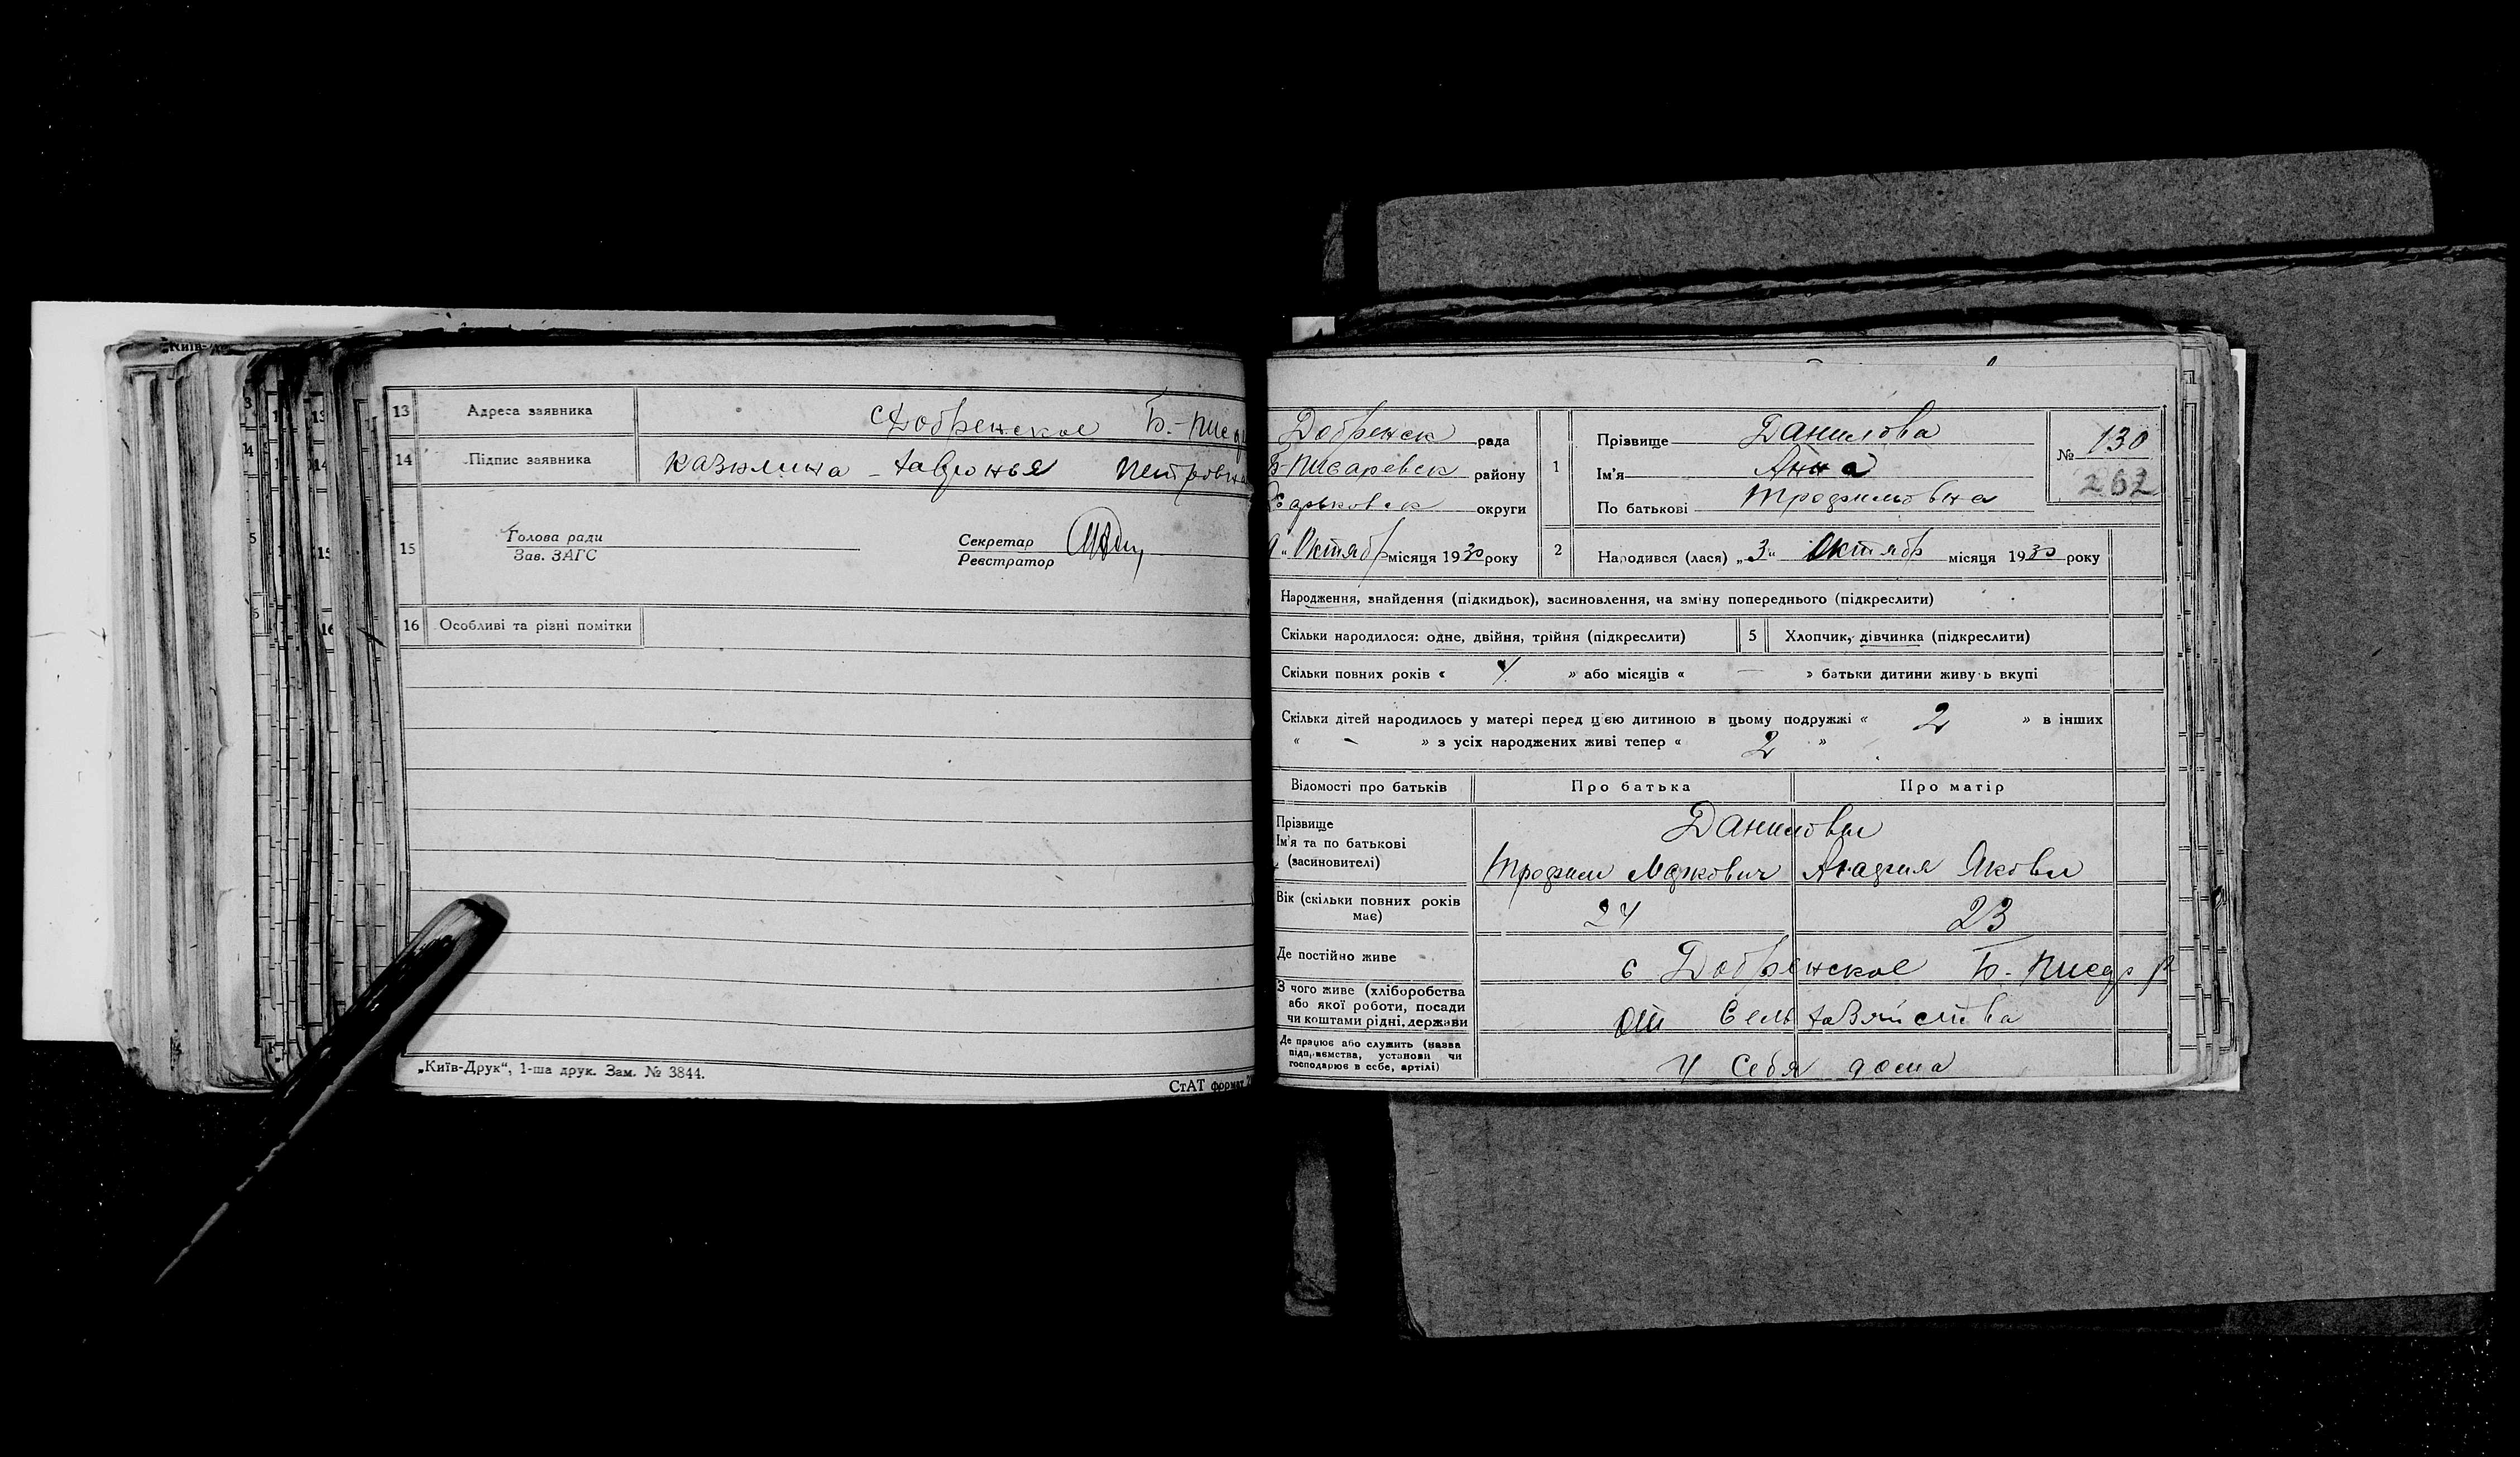 „Київ-
13 Адреса заявника с Добренское Б.-Писар
14 Підпис заявника Казилина - Хавронья Петровна
15 Голова ради
Зав. ЗАГС
Секретар
Реєстратор
16 Особливі та різні помітки
„Київ-Друк“, 1-ша друк. Зам. № 3844.
СтАТ формат
Добренск рада
Б-Писаревск району
Харьковск округи
9" Октябр місяця 1930 року
1 Прізвище Данилова
Ім'я Анна
По батькові Трофимовна
№ 130
262
2 Народився (лася) „3" Октябр місяця 1930 року
Народження, знайдення (підкидьок), засиновлення, на зміну попереднього (підкреслити)
Скільки народилося: одне, двійня, трійня (підкреслити) 5 Хлопчик, дівчинка (підкреслити)
Скільки повних років « 4 » або місяців « — » батьки дитини живуть вкупі
Скільки дітей народилось у матері перед цією дитиною в цьому подружжі « 2 » в інших
« - » з усіх народжених живі тепер « 2 »
Відомості про батьків Про батька Про матір
Прізвище
Ім'я та по батькові
(засиновителі)
Даниловы
Трофим Маркович Агафия Яковл
Вік (скільки повних років має) 24 23
Де постійно живе с Добренское Б.-Писар р
З чого живе (хліборобства
або якої роботи, посади
чи коштами рідні, держави
От Сельхазяйства
Де працює або служить (назва
підприємства, установи чи
господарює в себе, артілі)
У себя дома